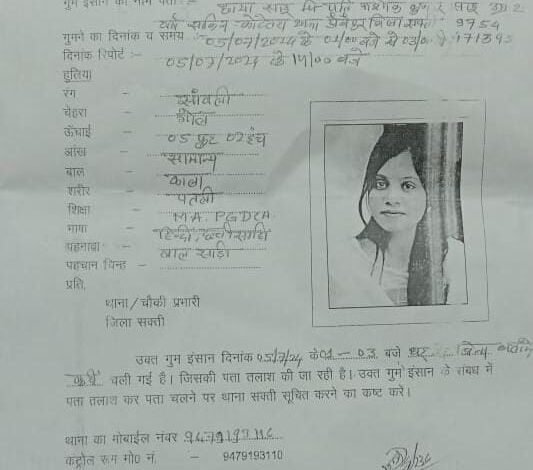 गुम इंसान का नाम पता:-
वर्ष साकिन थाना जिला सक्ती 9754
गुमने का दिनांक व समय 05/07/2024 के 01/00 बजे से 03/00 171395
दिनांक रिपोर्ट :- 05/07/2024 के 14/00 बजे
हुलिया
रंग - सांवली
चेहरा - गोल
ऊँचाई - 05 फुट 02 इंच
आंख - सामान्य
बाल - काला
शरीर - पतली
शिक्षा - M.A. PGDCA
भाषा - हिन्दी, छत्तीसगढ़ी
पहनावा - लाल साड़ी
पहचान चिन्ह -
प्रति,
थाना/चौकी प्रभारी
जिला सक्ती
उक्त गुम इंसान दिनांक 05/7/24 के 01 - 03 बजे घर बिना बताये
कहीं चली गई है। जिसकी पता तलाश की जा रही है। उक्त गुम इंसान के संबंध में
पता तलाश कर पता चलने पर थाना सक्ती सूचित करने का कष्ट करें।
थाना का मोबाईल नंबर 94791931
कंट्रोल रूम मो0 नं. - 9479193110